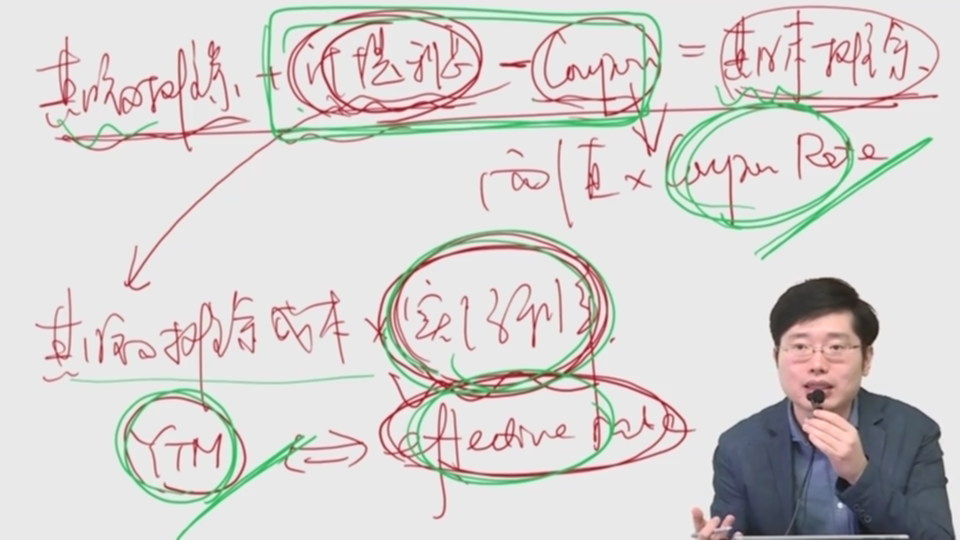 期初摊余 + 计提利息 - Coupon = 期末摊余
面值 × Coupon Rate
期初摊余成本 × 实际利率
YTM ⇔ effective rate